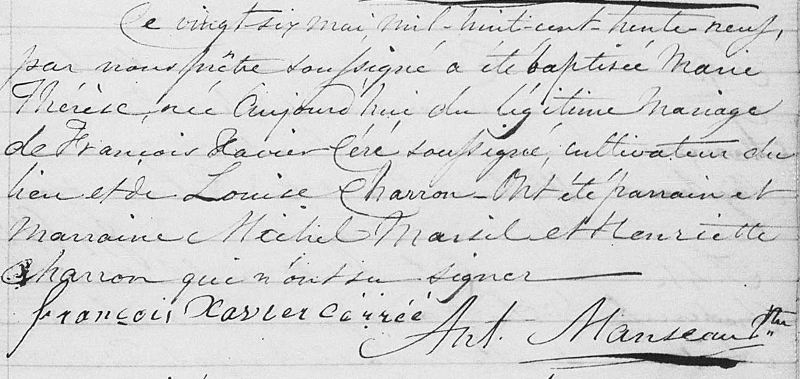 Le vingt-six mai, mil-huit-cent-trente neuf,
par nous prêtre soussigné a été baptisée Marie
Thérèse, née Aujourd'hui du légitime Mariage
de François Xavier Céré soussigné, cultivateur du
lieu et de Louise Charron - Ont été parrain et
Marraine Michel Marsil et Henriette
Charron qui n'ont su signer
françois Xavier cérréé
Ant. Manseau Ptre